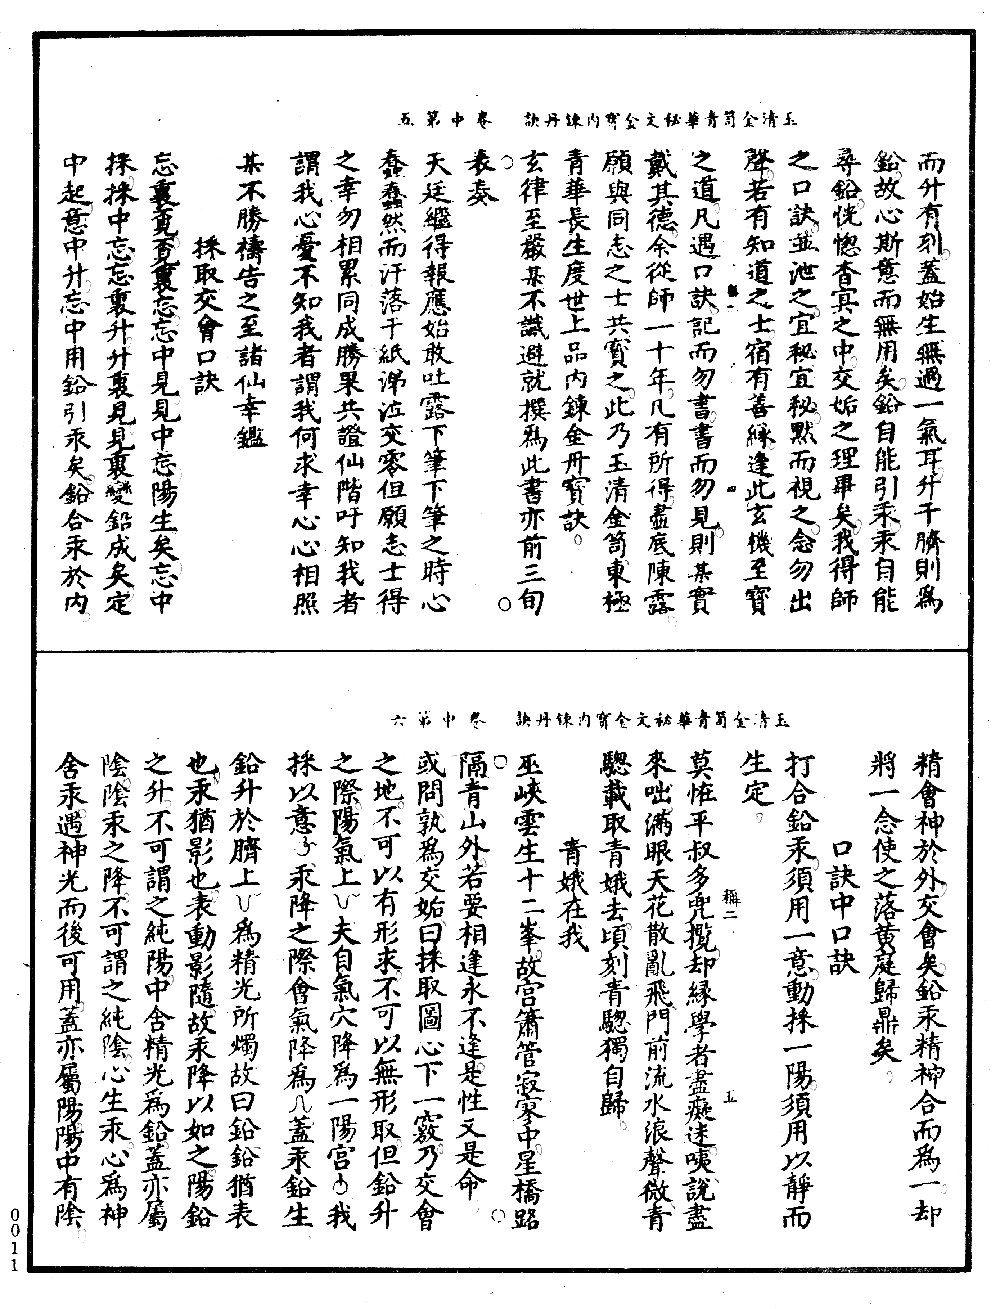 玉清金笥青華秘文金寳内鍊丹訣　卷中第五
而升有刻蓋始生無過一氣耳升于臍則爲
鉛故心斯意而無用矣鉛自能引汞汞自能
尋鉛恍惚杳冥之中交姤之理畢矣我得師
之口訣並池之宜秘宜秘默而視之念勿出
聲若有知道之士宿有善緣逢此玄機至寳
之道凡遇口訣記而勿書書而勿見則某實
戴其德余從師一十年凡有所得盡底陳露
願與同志之士共寳之此乃玉清金笥東極
青華長生度世上品内鍊金丹寳訣
玄律至嚴某不識避就撰爲此書亦前三旬
表奏
天廷繼得報應始敢吐露下筆下筆之時心
蠢蠢然而汗落于紙涕泣交零但願志士得
之幸勿相累同成勝果共證仙階吁知我者
謂我心憂不知我者謂我何求幸心心相照
某不勝禱告之至諸仙幸鑑
採取交會口訣
忘裏覓覓裏忘忘中見見中忘陽生矣忘中
採採中忘忘裏升升裏見見裏變鉛成矣定
中起意中升忘中用鉛引汞矣鉛合汞於内
玉清金笥青華秘文金寳内鍊丹訣　卷中第六
精會神於外交會矣鉛汞精神合而爲一却
將一念使之落黄庭歸鼎矣
口訣中口訣
打合鉛汞須用一意動採一陽須用以靜而
生定
莫怪平叔多兜攬却緣學者盡癡迷咦說盡
來咄滿眼天花散亂飛門前流水浪聲微青
驄載取青娥去頃刻青驄獨自歸
青娥在我
巫峽雲生十二峯故宫簫管寂寥中星橋路
隔青山外若要相逢永不逢是性又是命
或問孰爲交姤曰採取圖心下一竅乃交會
之地不可以有形求不可以無形取但鉛升
之際陽氣上夫自氣穴降爲一陽宫我
採以意汞降之際會氣降爲蓋汞鉛生
鉛升於臍上爲精光所燭故曰鉛鉛猶表
也汞猶影也表動影隨故汞降以如之陽鉛
之升不可謂之純陽中含精光爲鉛蓋亦屬
陰陰汞之降不可謂之純陰心生汞心爲神
舍汞遇神光而後可用蓋亦屬陽陽中有陰
稱二
五
0011